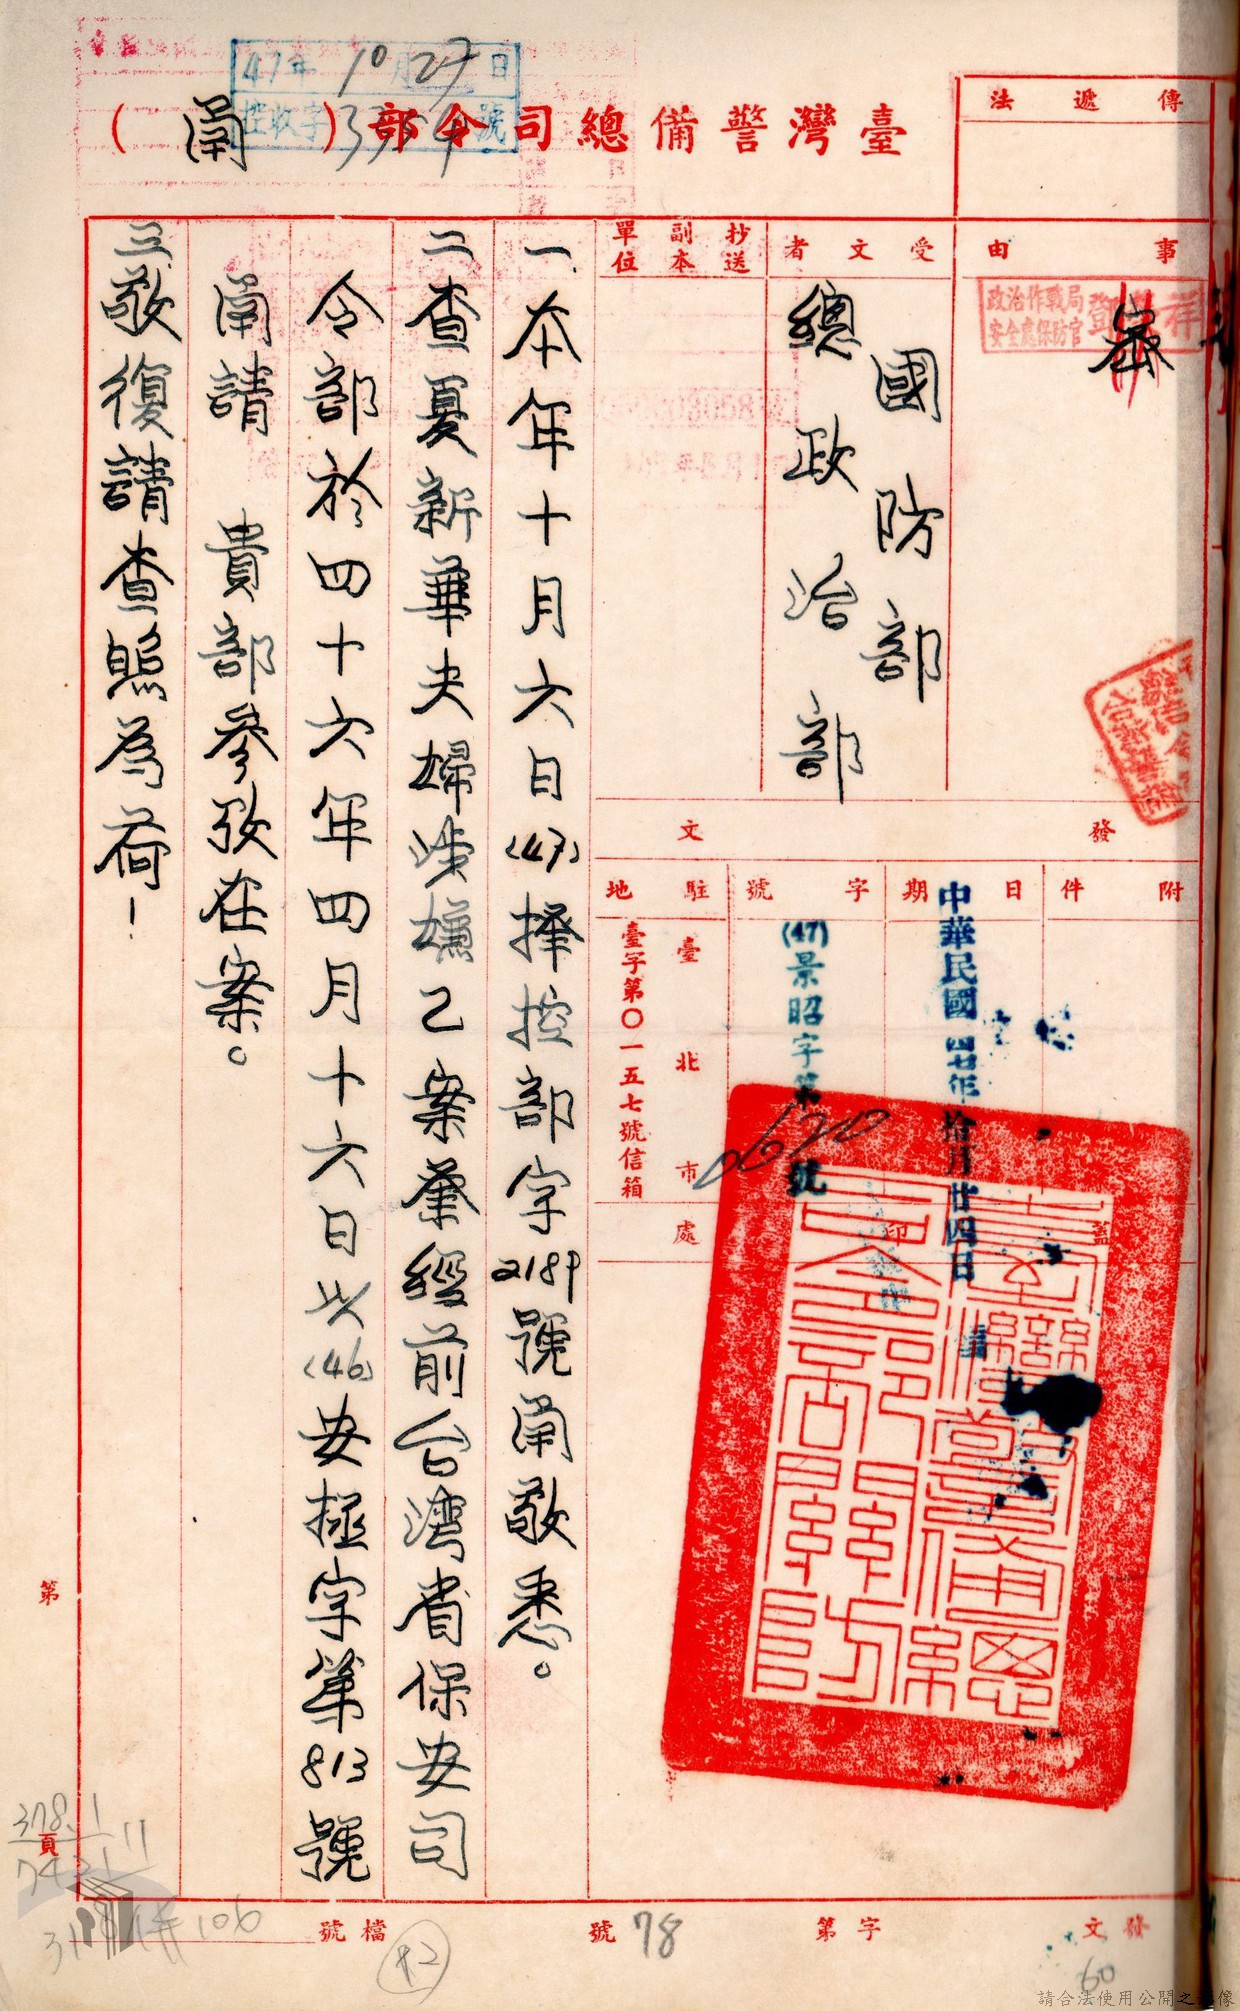 47年10月27日
控收字3354號
臺灣警備總司令部（函）
傳遞法
事由
密
政治作戰局
安全處保防官
鄧
祥
受文者
國防部
總政治部
抄送
副本
單位
發文
附件
日期
中華民國四七年拾月廿四日
字號
(47)景昭字第0620號
駐地
臺北市
臺字第〇一五七號信箱
蓋印處
臺灣警備總司令部關防
一、本年十月六日(47)擇控部字2189號函敬悉。
二查夏新華夫婦涉嫌乙案業經前台灣省保安司
令部於四十六年四月十六日以(46)安極字第813號
函請 貴部參攷在案。
三敬復請查照為荷！
第
頁
378.1
7421
11
3118
106
檔號
42
發文
字第
78
號
60
請合法使用公開之影像